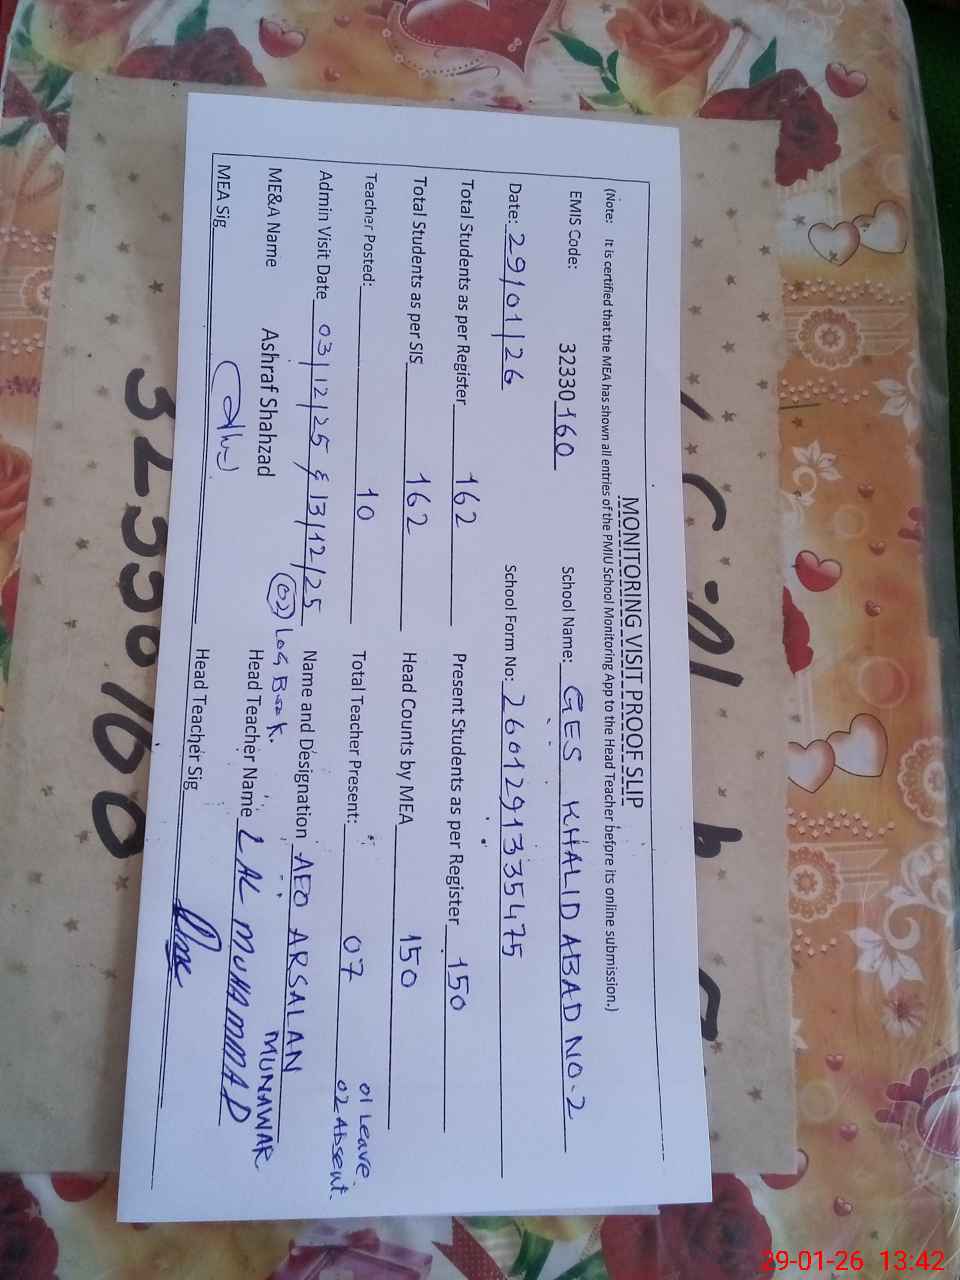 MONITORING VISIT PROOF SLIP
(Note: It is certified that the MEA has shown all entries of the PMIU School Monitoring App to the Head Teacher before its online submission.)
EMIS Code: 32330160 School Name: GES KHALID ABAD NO-2
Date: 29/01/26 School Form No: 2601291335475
Total Students as per Register 162 Present Students as per Register 150
Total Students as per SIS 162 Head Counts by MEA 150
Teacher Posted: 10 Total Teacher Present: 07 01 Leave. 02 Absent.
Admin Visit Date 03/12/25 & 13/12/25 Name and Designation AEO ARSALAN MUNAWAR
(02) LOG Book.
ME&A Name Ashraf Shahzad Head Teacher Name LAL MUHAMMAD
MEA Sig Head Teacher Sig
32330160
29-01-26 13:42